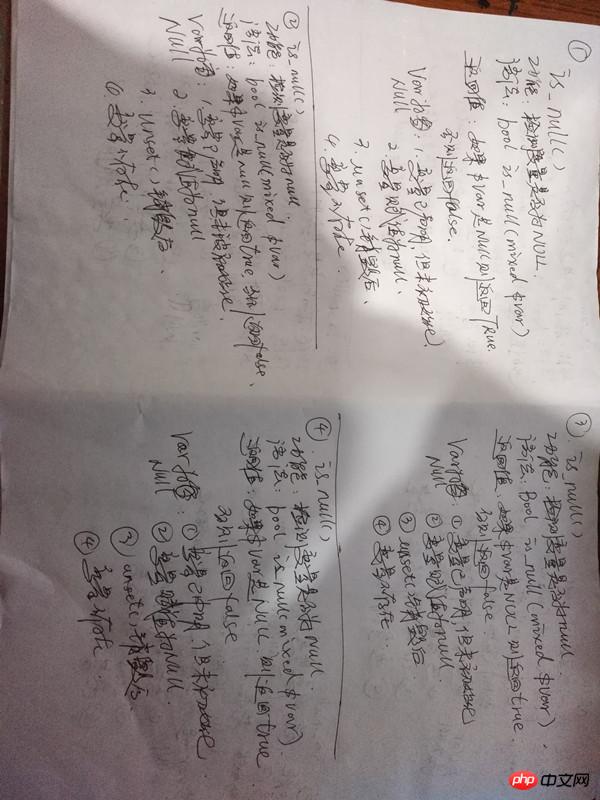 ①
is_null()
功能：检测变量是否为NULL.
语法：bool is_null(mixed $var)
返回值：如果$var是Null则返回True.
否则返回false.
Var为 1.变量已声明,但未初始化
Null 2.变量赋值为null.
3.unset()销毁后、
4.变量不存在.
② is_null()
功能：检测变量是否为null.
语法：bool is_null(mixed $var)
返回值：如果$var是null则返回true,否则返回false.
Var为：1.变量已声明,但未初始化
Null 2.变量赋值为null
3.unset()销毁后.
④变量不存在.
③.is_null()
功能：检测变量是否为null.
语法：Bool is_null(mixed $var).
返回值：如果$var是NULL则返回true.
否则返回false
Var为：①变量已声明,但未初始化
Null ②变量赋值为null
③unset()销毁后
④变量不存在
④.is_null()
功能：检测变量是否为null.
语法：bool is_null(mixed $var).
返回值：如果$var是NULL.则返回true
否则返回false
Var为：①变量已声明,但未初始化
Null ②变量赋值为null.
③unset()销毁后
④变量不存在.
php中文网